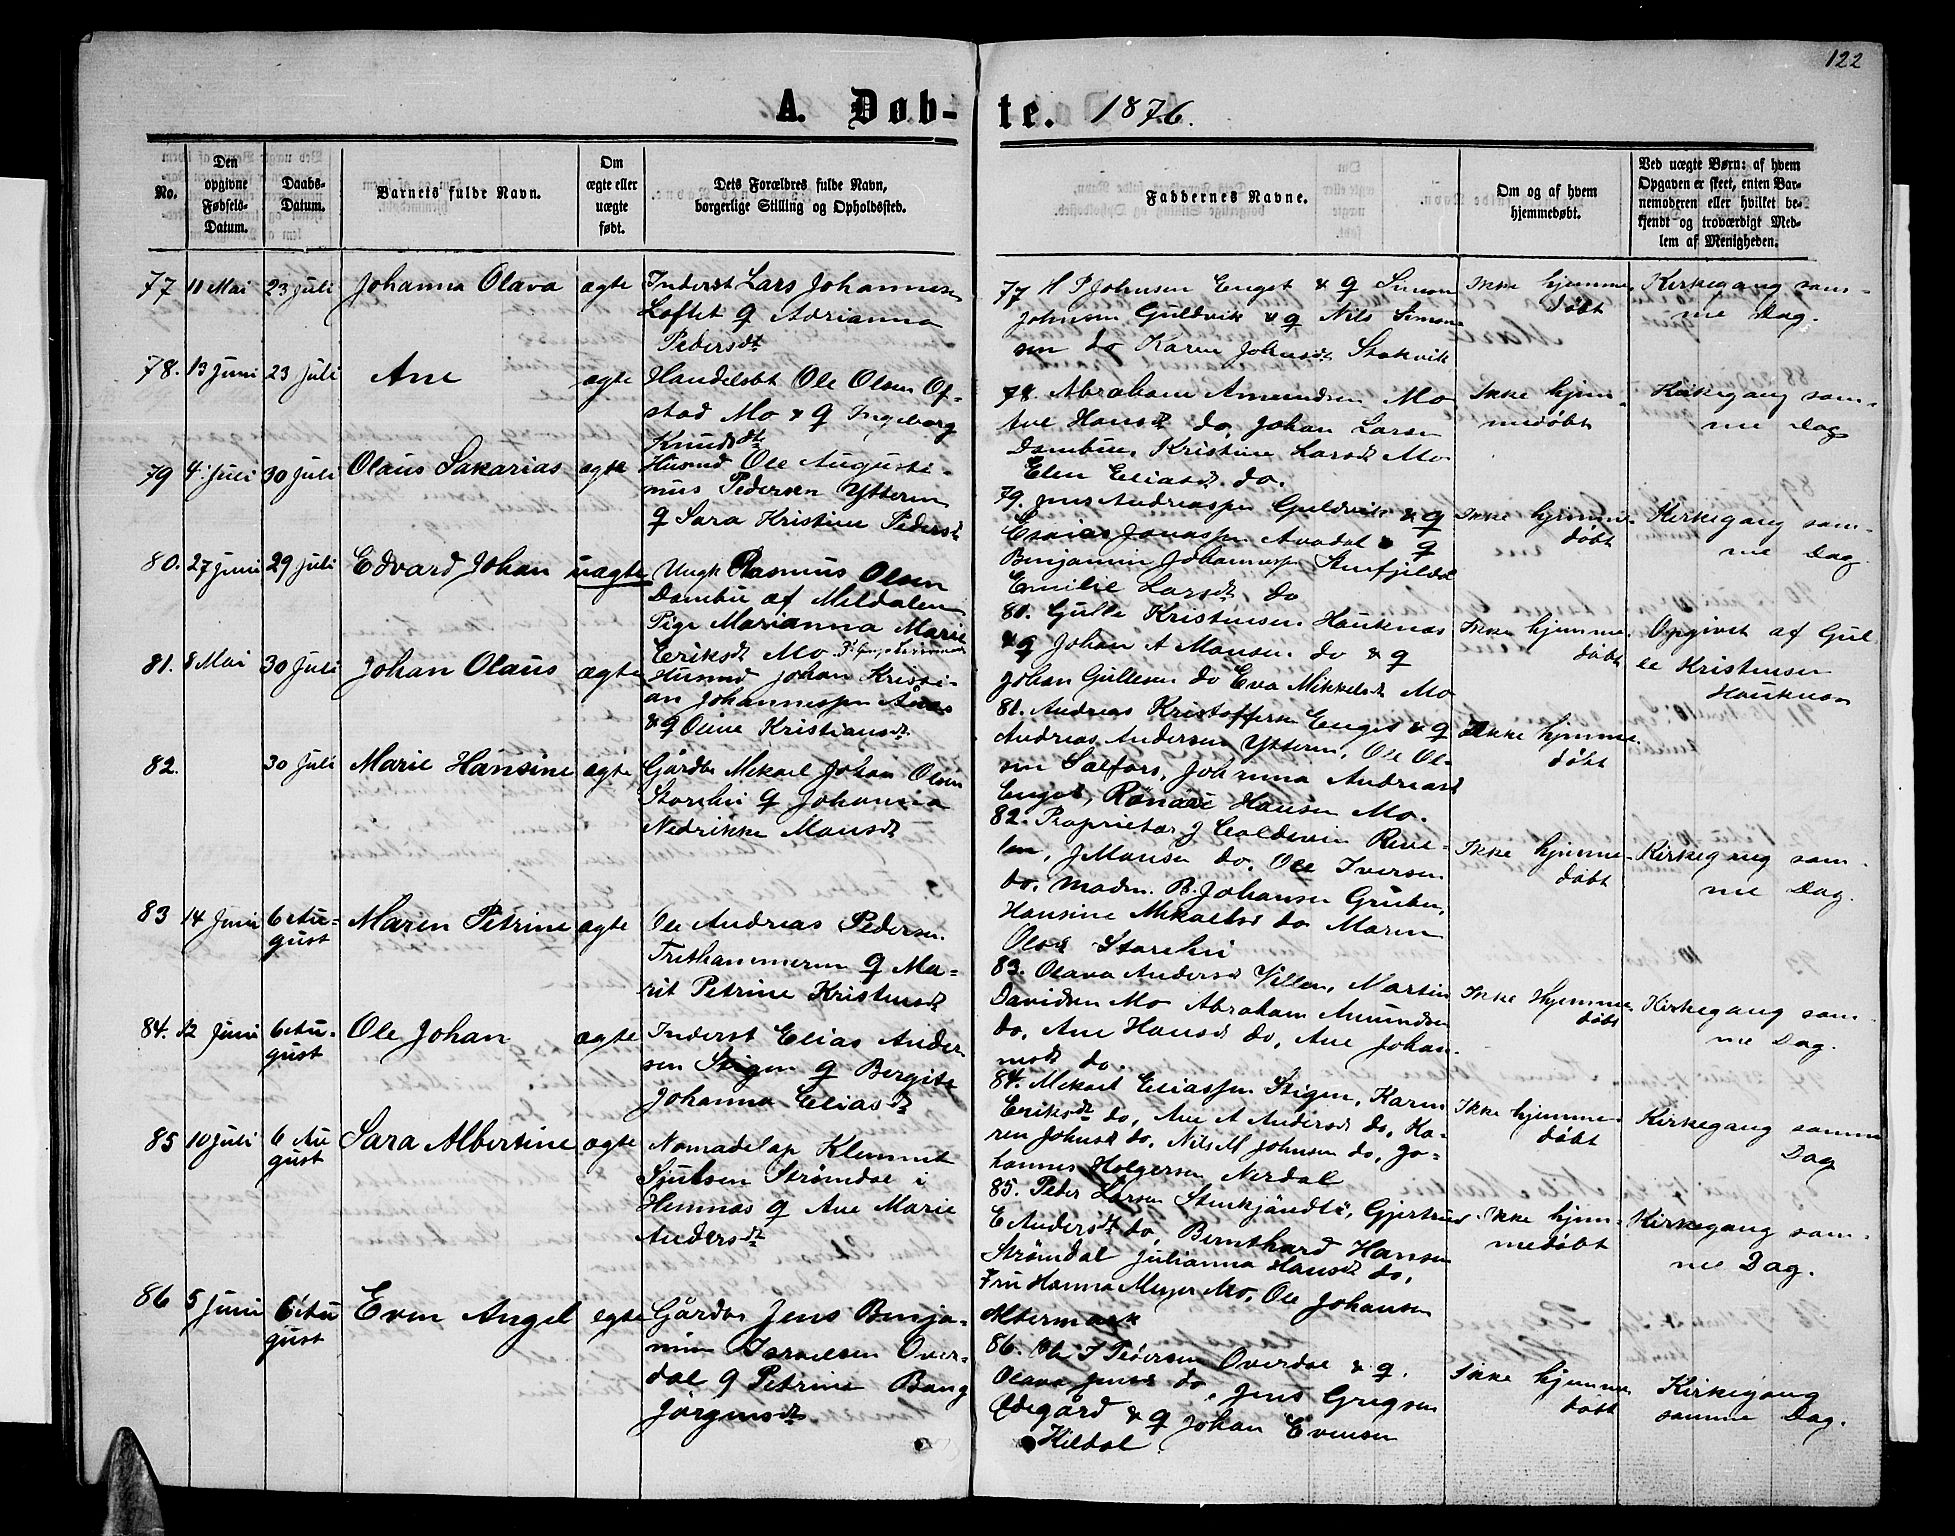 122
A. Døb-
te. 1876.
No.
Den
opgivne
Fødsels-
Datum.
Daabs-
Datum.
Barnets fulde Navn.
Om
ægte eller
uægte
født.
Dets Forældres fulde Navn,
borgerlige Stilling og Opholdssted.
Faddernes Navne.
Om og af hvem
hjemmedøbt.
Ved uægte Børn: af hvem
Opgaven er skeet, enten Bar-
nemoderen eller hvilket be-
kjendt og troværdigt Med-
lem af Menigheden.
77 11 Mai 23 Juli Johanna Olava ægte Inderst Lars Johannesen
Loftet & Adrianna
Pedersdt
77 H P Johnsen Enget & Q Simon
Johnsen Guldvik & Q Nils Simon
sen do Karen Johnsdt Stokvik
Ikke hjemme
døbt
Kirkegang sam-
me Dag.
78. 13 Juni 23 Juli Ane ægte Handelsbt Ole Olsen Of-
stad Mo & Q Ingeborg
Knudsdt
78. Abraham Amundsen Mo
Ane Hansdt do, Johan Larsen
Dambu, Kristine Larsdt Mo
Elen Eliasdt do.
Ikke hjem-
medøbt
Kirkegang sam-
me Dag
79 4. Juli 30 Juli Olaus Sakarias ægte Husmd Ole Augusti-
nus Pedersen Ytteren
Q Sara Kristine Pedersdt
79. Jens Andreassen Guldvik & Q
Esaias Jonassen Avadal & Q
Benjamin Johannessen Stufjeldal
Emilie Larsdt do
Ikke hjemme-
døbt
Kirkegang sam-
me Dag
80. 27 Juni 29 Juli Edvard Johan uægte Ungk Rasmus Olsen
Dambu af Meldalen
Pige Marianna Marie
Eriksdt Mo
80. Gulle Kristensen Hauknæs
& Q Johan A Monsen do & Q
Johan Gullesen do Eva Mikkelsdt Mo
Ikke hjemme-
døbt
Opgivet af Gul
le Kristensen
Hauknæs
81. 8 Mai 30 Juli Johan Olaus ægte Husmd Johan Kristi-
an Johannessen Aanes
& Q Oline Kristiansdt
81. Andreas Kristoffersen Enget & Q
Andreas Andersen Ytteren, Ole Ol-
sen Selfors, Johanna Andreasdt
Enget, Hansen Mo.
Ikke hjemme-
døbt
82. 30 Juli Marie Hansine ægte Gårdbr Mekael Johan Olsen
Storelii Q Johanna
Nedrikke Monsdt
82. Proprietær J Coldevin Reve-
len, J Monsen do, Ole Iversen
do, Madm. B. Johansen Gruben,
Hansine Mekaelsdt do Maren
Olsdt Storelii
Ikke hjemme-
døbt
Kirkegang sam-
me Dag.
83 14 Juni 6 Au-
gust Maren Petrine ægte Ole Andreas Pedersen
Trethammeren Q Ma-
rit Petrine Kristensdt
83. Olava Andersdt Villen, Martin
Davidsen Mo Abraham Amundsen
do, Ane Hansdt do, Ane Johan-
nesdt do.
Ikke Hjemme
døbt
Kirkegang sam-
me Dag.
84. 12 Juni 6 Au-
gust Ole Johan ægte Inderst Elias Ander-
sen Stigen Q Bergite
Johanna Eliasdt
84. Mekael Eliassen Stigen, Karen
Eriksdt do, Ane A Andersdt do, Ka-
ren Johnsdt do, Nils M Johnsen do, Jo-
hannes Holgersen Nerdal
Ikke hjemme-
døbt
Kirkegang samme
Dag
85 10 Juli 6 Au
gust Sara Albertine ægte Nomadelap Klemmet
Sjulsen Strømdal i
Hemnæs Q Ane Marie
Andersdt
85. Peder Larsen Stenkjøndli, Gjertrud
E Andersdt do, Bernthard Hansen
Strømdal Julianna Hansdt do,
Fru Hanna Meyer Mo, Ole Johansen
Altermark
Ikke hjem-
medøbt
Kirkegang sam-
me Dag.
86 5 Juni 6 Au
gust Even Angel egte Gårdbr Jens Benja-
min Israelsen Over-
dal Q Petrine Bang
Jörgensdt
86. Ole I Pedersen Overdal & Q.
Olava Jensdt do, Jens Gregsen
Ødegård & Q Johan Evensen
Kildal
Ikke hjemme
døbt
Kirkegang
samme Dag.